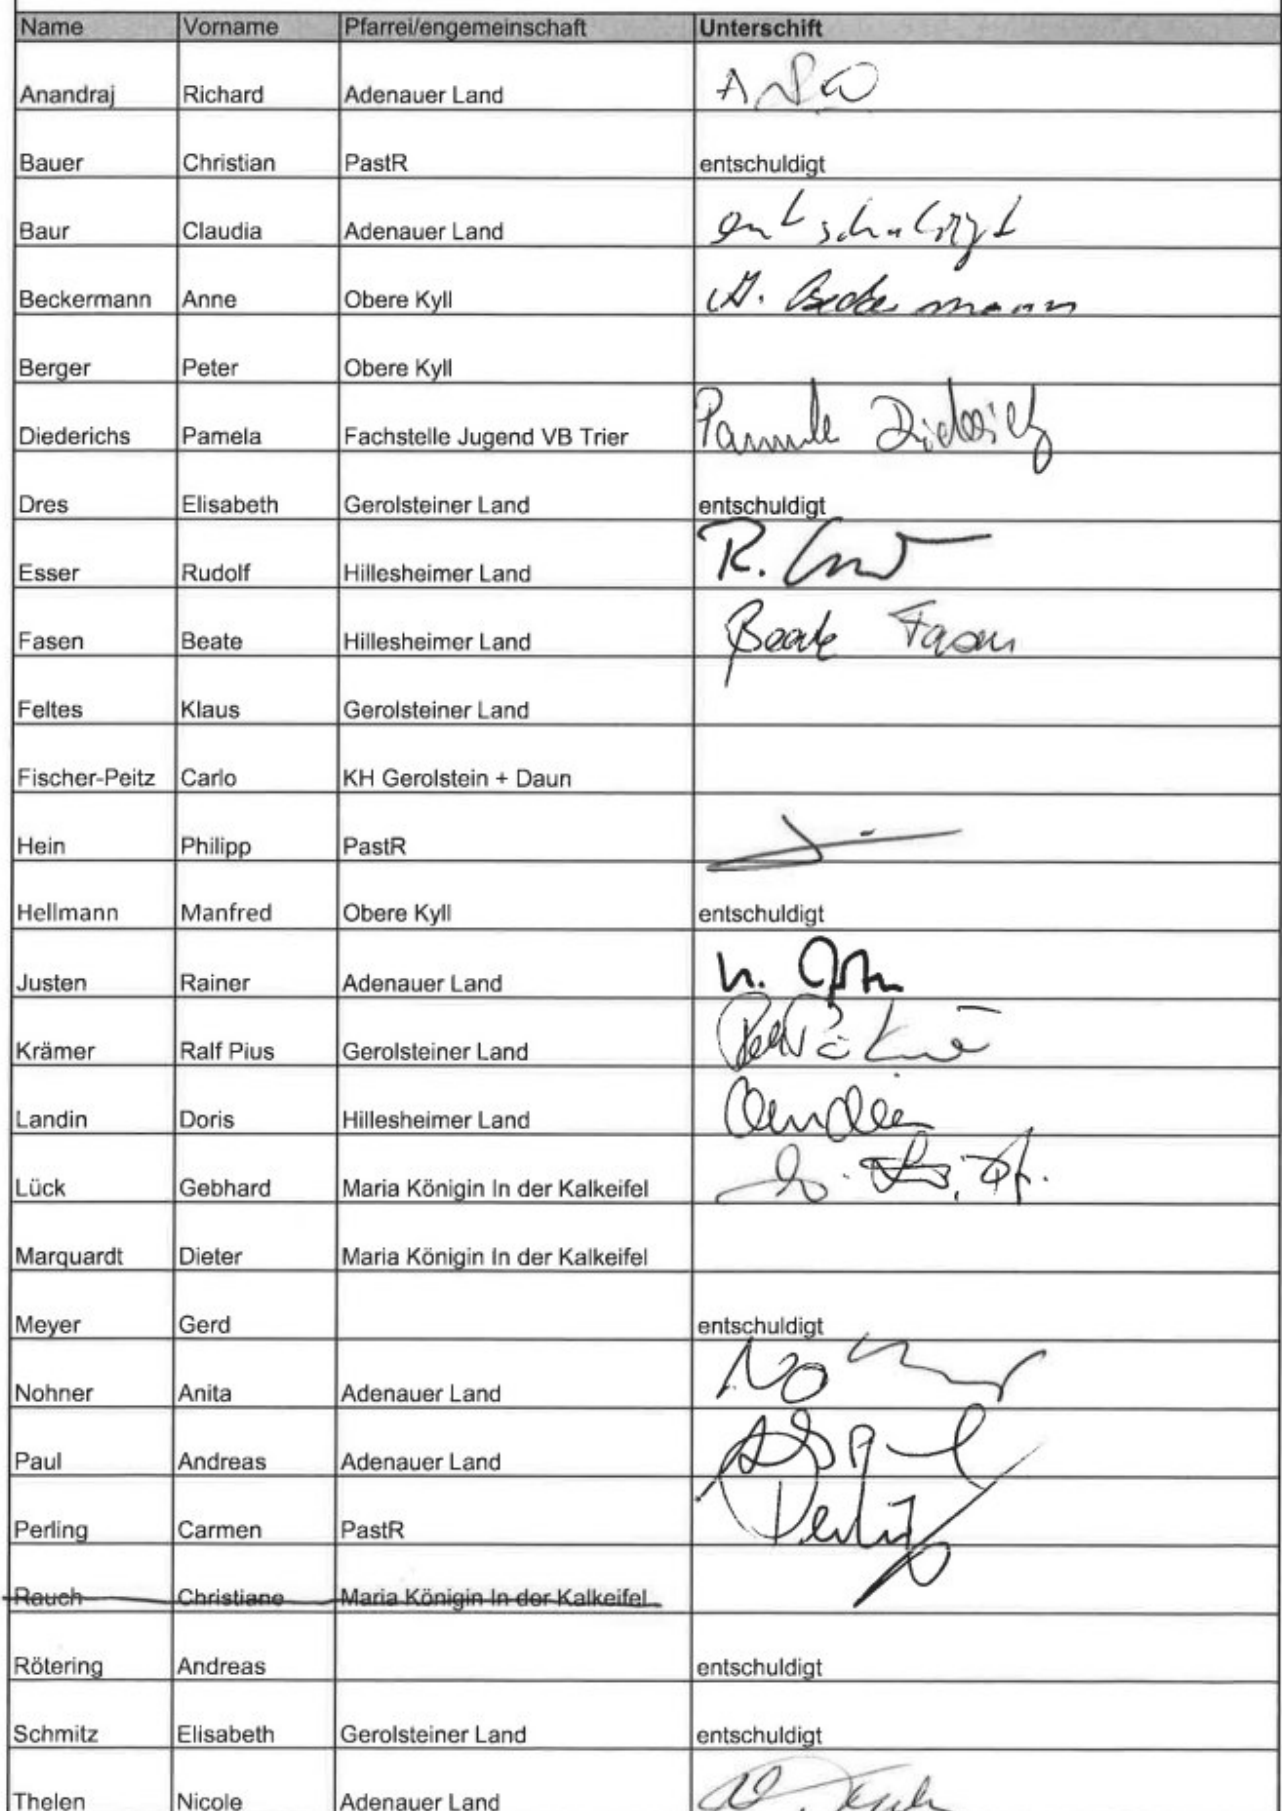 Name Vorname Pfarrei/engemeinschaft Unterschift
Anandraj Richard Adenauer Land
Bauer Christian PastR entschuldigt
Baur Claudia Adenauer Land entschuldigt
Beckermann Anne Obere Kyll A. Beckermann
Berger Peter Obere Kyll
Diederichs Pamela Fachstelle Jugend VB Trier Pamela Diederichs
Dres Elisabeth Gerolsteiner Land entschuldigt
Esser Rudolf Hillesheimer Land R.
Fasen Beate Hillesheimer Land Beate Fasen
Feltes Klaus Gerolsteiner Land
Fischer-Peitz Carlo KH Gerolstein + Daun
Hein Philipp PastR
Hellmann Manfred Obere Kyll entschuldigt
Justen Rainer Adenauer Land
Krämer Ralf Pius Gerolsteiner Land
Landin Doris Hillesheimer Land
Lück Gebhard Maria Königin In der Kalkeifel
Marquardt Dieter Maria Königin In der Kalkeifel
Meyer Gerd entschuldigt
Nohner Anita Adenauer Land
Paul Andreas Adenauer Land
Perling Carmen PastR Perling
Rauch Christiane Maria Königin In der Kalkeifel
Rötering Andreas entschuldigt
Schmitz Elisabeth Gerolsteiner Land entschuldigt
Thelen Nicole Adenauer Land